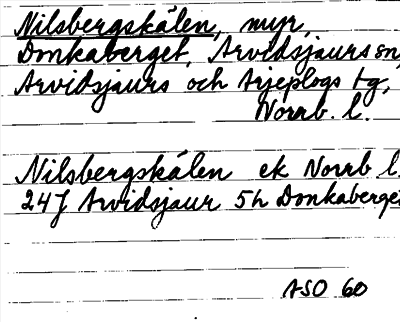 Nilsbergskålen, myr,
Donkaberget, Arvidsjaurs sn,
Arvidsjaurs och Arjeplogs tg,
Norrb. l.
Nilsbergskålen ek Norrb l.
24J Arvidsjaur 5h Donkaberget
ASO 60